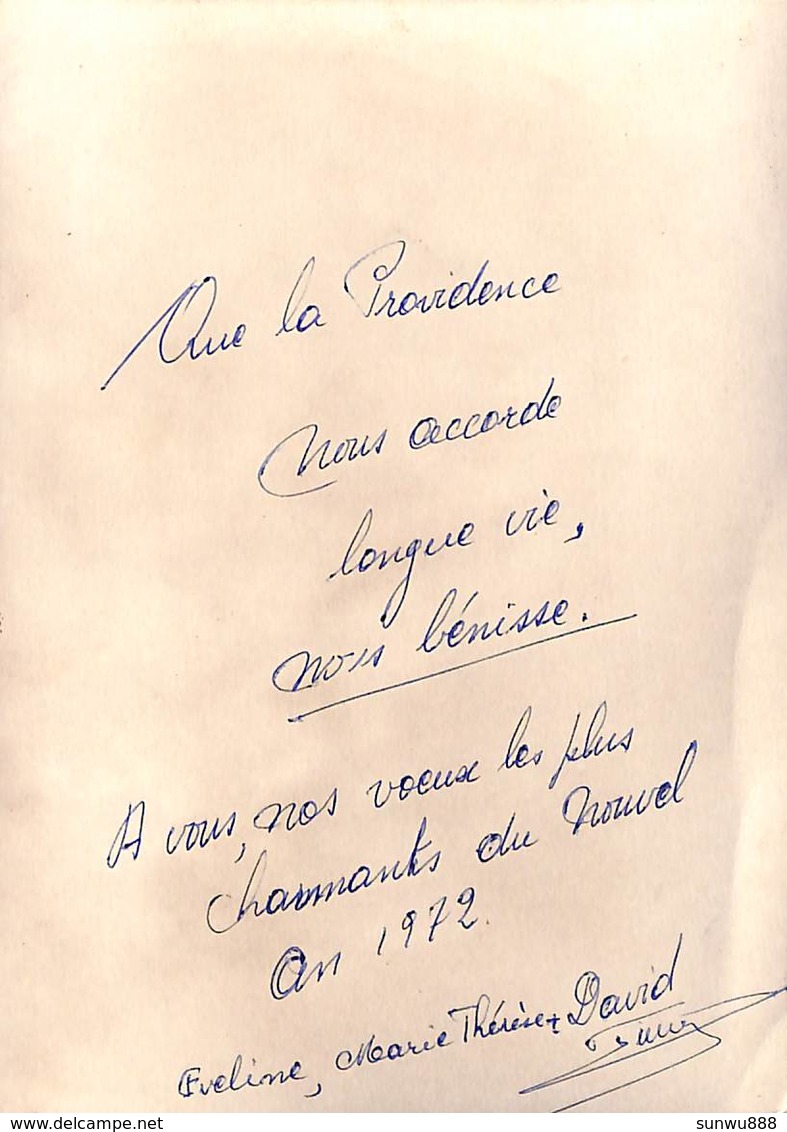 Que la Providence
nous accorde
longue vie,
nous bénisse.
A vous, nos voeux les plus
charmants du Nouvel
An 1972.
Eveline, Marie Thérèse + David
sunwu888